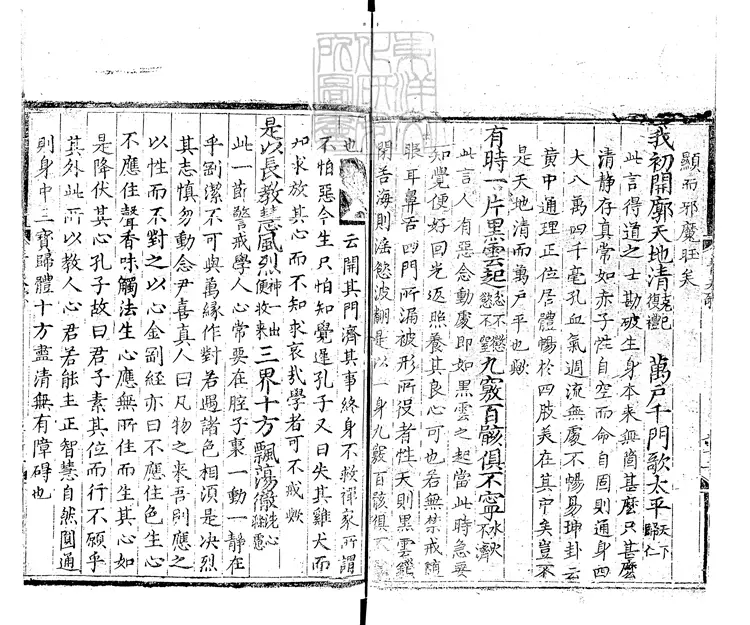 顯而邪魔旺矣
我初開廓天地清克己復禮萬戶千門歌太平天下歸仁
此言得道之士勘破生身本来無箇甚麼只甚麼
清静存真常如赤子性自空而命自固則通身四
大八萬四千毫孔血氣週流無處不暢易坤卦云
黄中通理正位居體暢於四肢美在其中矣豈不
是天地清而萬戶平也歟
有時一片黑雲起忿不懲慾不窒九竅百骸俱不寧水火不濟
此言人有惡念動處即如黑雲之起當此時急要
知覺便好回光返照養其良心可也若無禁戒
眼耳鼻舌四門所漏被形所役者性天則黑雲
開苦海則淫慾波翻是以一身九竅百骸俱不
也云開其門濟其事終身不救禪家所謂
不怕惡念生只怕知覺遲孔子又曰失其雞犬而
知求放其心而不知求哀哉學者可不戒歟
是以長教慧風烈神一出便收来三界十方飄蕩徹洗心
此一節警戒學人心常要在腔子裏一動一静在
乎剷潔不可與萬緣作對若遇諸色相須是决烈
其志慎勿動念尹喜真人曰凡物之来吾則應之
以性而不對之以心金剛經亦曰不應住色生心
不應住聲香味觸法生心應無所住而生其心如
是降伏其心孔子故曰君子素其位而行不願乎
其外此所以教人心君若能主正智慧自然圓通
則身中三寶歸體十方盡清無有障碍也